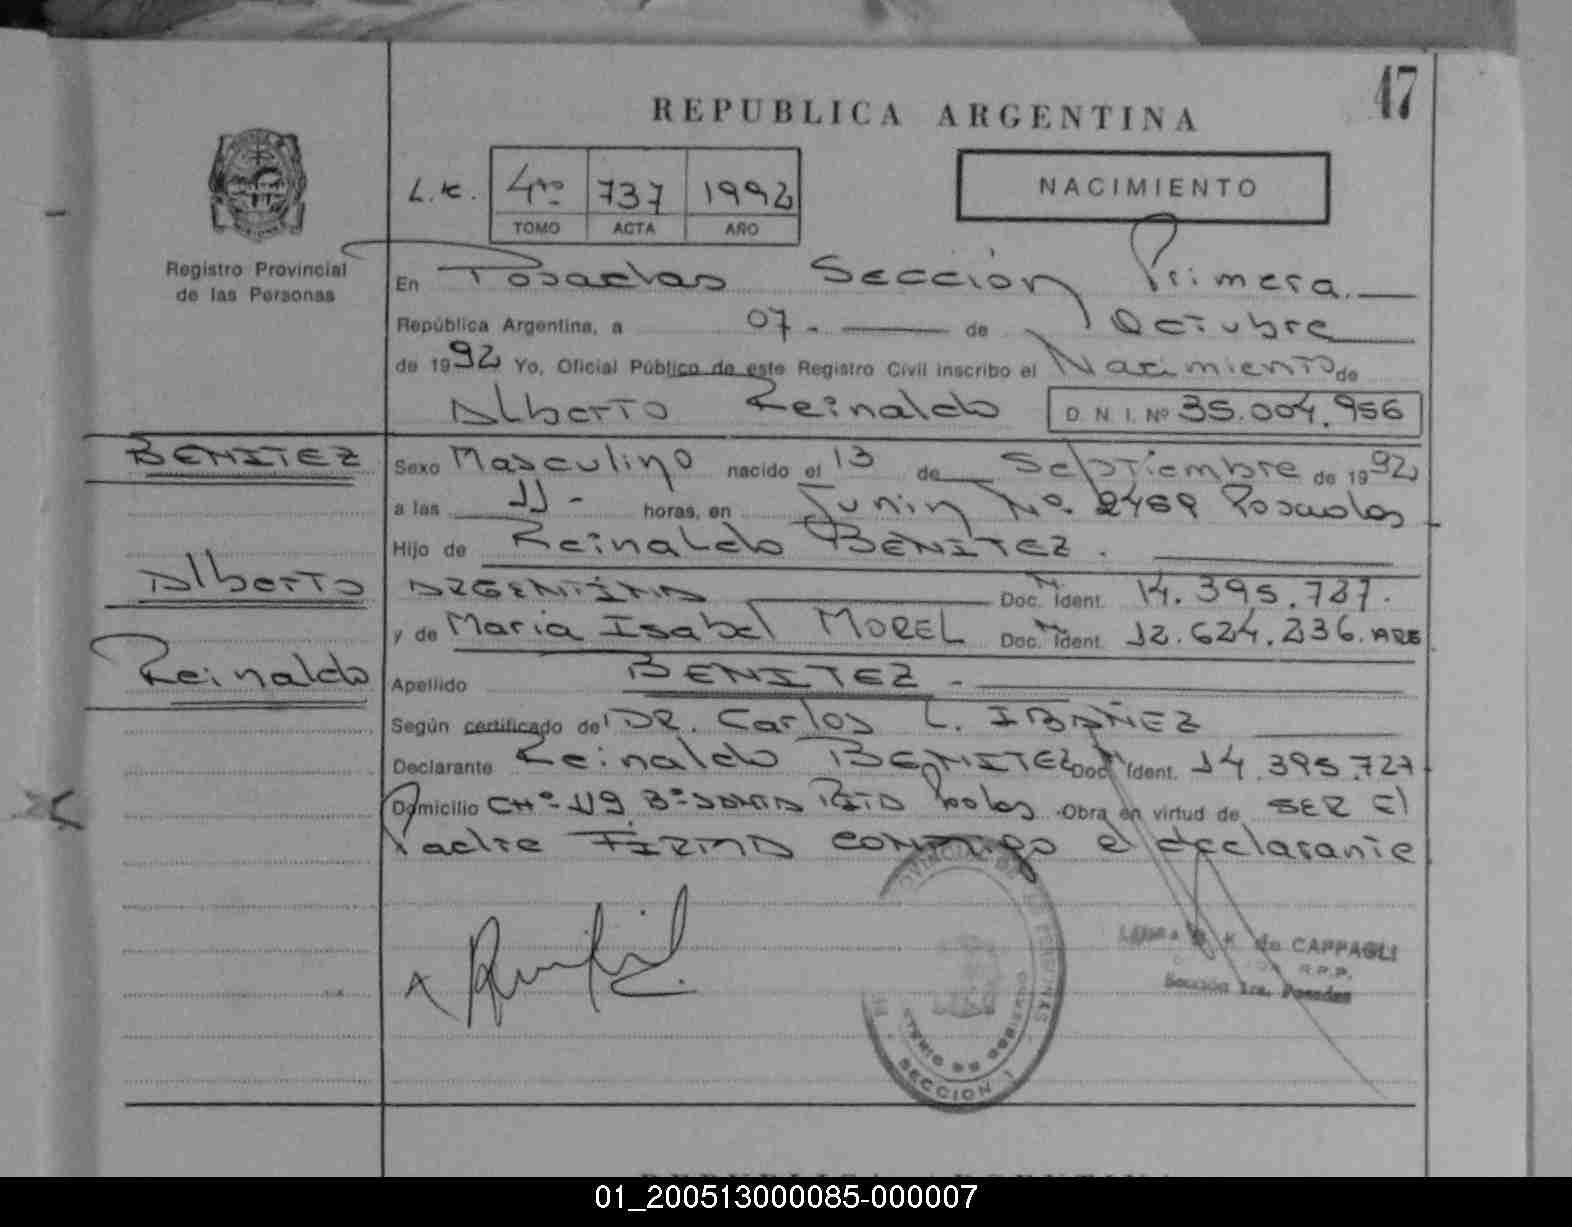 47
REPUBLICA ARGENTINA
L.C. 4to 737 1992
TOMO ACTA AÑO
NACIMIENTO
Registro Provincial
de las Personas
En Posadas Sección Primera.
República Argentina, a 07.- de Octubre
de 1992 Yo, Oficial Público de este Registro Civil inscribo el Nacimiento de
Alberto Reinaldo D. N. I. Nº 35.004.956
BENITEZ
Alberto
Reinaldo
Sexo Masculino nacido el 13 de Septiembre de 1992
a las 11- horas, en Junin No. 2469 Posadas
Hijo de Reinaldo BENITEZ.
ARGENTINA Doc. Ident. 14.395.727.
y de Maria Isabel MOREL Doc. Ident. 12.624.236. ARG
Apellido BENITEZ -
Según certificado del DR. Carlos L. IBAÑEZ
Declarante Reinaldo BENITEZ Doc. Ident. 14.395.727
Domicilio CHº 119 Bº SANTA RITA Obra en virtud de SER El
Padre FIRMA CONMIGO el declarante
de CAPPAGLI
R.P.P.
Sección 1ra. Posadas
SECCION 1
01_200513000085-000007